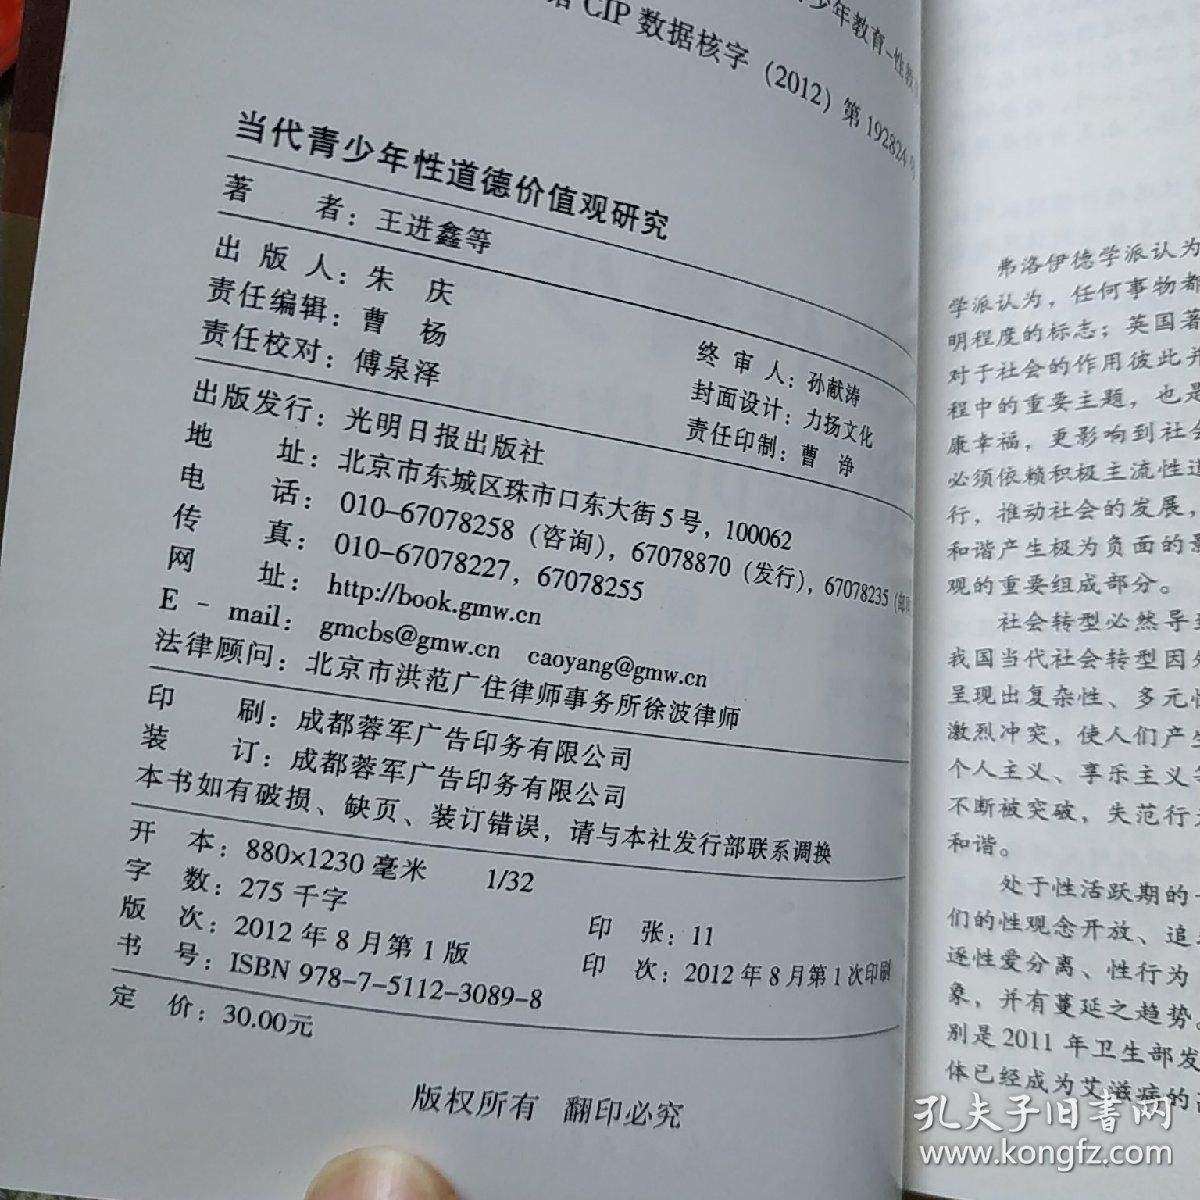 少年教育-性教
CIP 数据核字 (2012) 第 192824 号
当代青少年性道德价值观研究
著 者：王进鑫等
出 版 人：朱 庆
终 审 人：孙献涛
责任编辑：曹 杨
封面设计：力扬文化
责任校对：傅泉泽
责任印制：曹 诤
出版发行：光明日报出版社
地 址：北京市东城区珠市口东大街5号，100062
电 话：010-67078258（咨询），67078870（发行），67078235（邮
传 真：010-67078227，67078255
网 址：http://book.gmw.cn
E - mail：gmcbs@gmw.cn caoyang@gmw.cn
法律顾问：北京市洪范广住律师事务所徐波律师
印 刷：成都蓉军广告印务有限公司
装 订：成都蓉军广告印务有限公司
本书如有破损、缺页、装订错误，请与本社发行部联系调换
开 本：880×1230 毫米 1/32
字 数：275 千字
印 张：11
版 次：2012 年 8 月第 1 版
印 次：2012 年 8 月第 1 次印刷
书 号：ISBN 978-7-5112-3089-8
定 价：30.00元
版权所有 翻印必究
弗洛伊德学派认为
学派认为，任何事物都
明程度的标志；英国著
对于社会的作用彼此并
程中的重要主题，也是
康幸福，更影响到社会
必须依赖积极主流性道
行，推动社会的发展，
和谐产生极为负面的景
观的重要组成部分。
社会转型必然导致
我国当代社会转型因
呈现出复杂性、多元性
激烈冲突，使人们产生
个人主义、享乐主义
不断被突破，失范行
和谐。
处于性活跃期的
们的性观念开放、追
逐性爱分离、性行为
象，并有蔓延之趋势
别是 2011 年卫生部发
体已经成为艾滋病的
孔夫子旧书网
www.kongfz.com